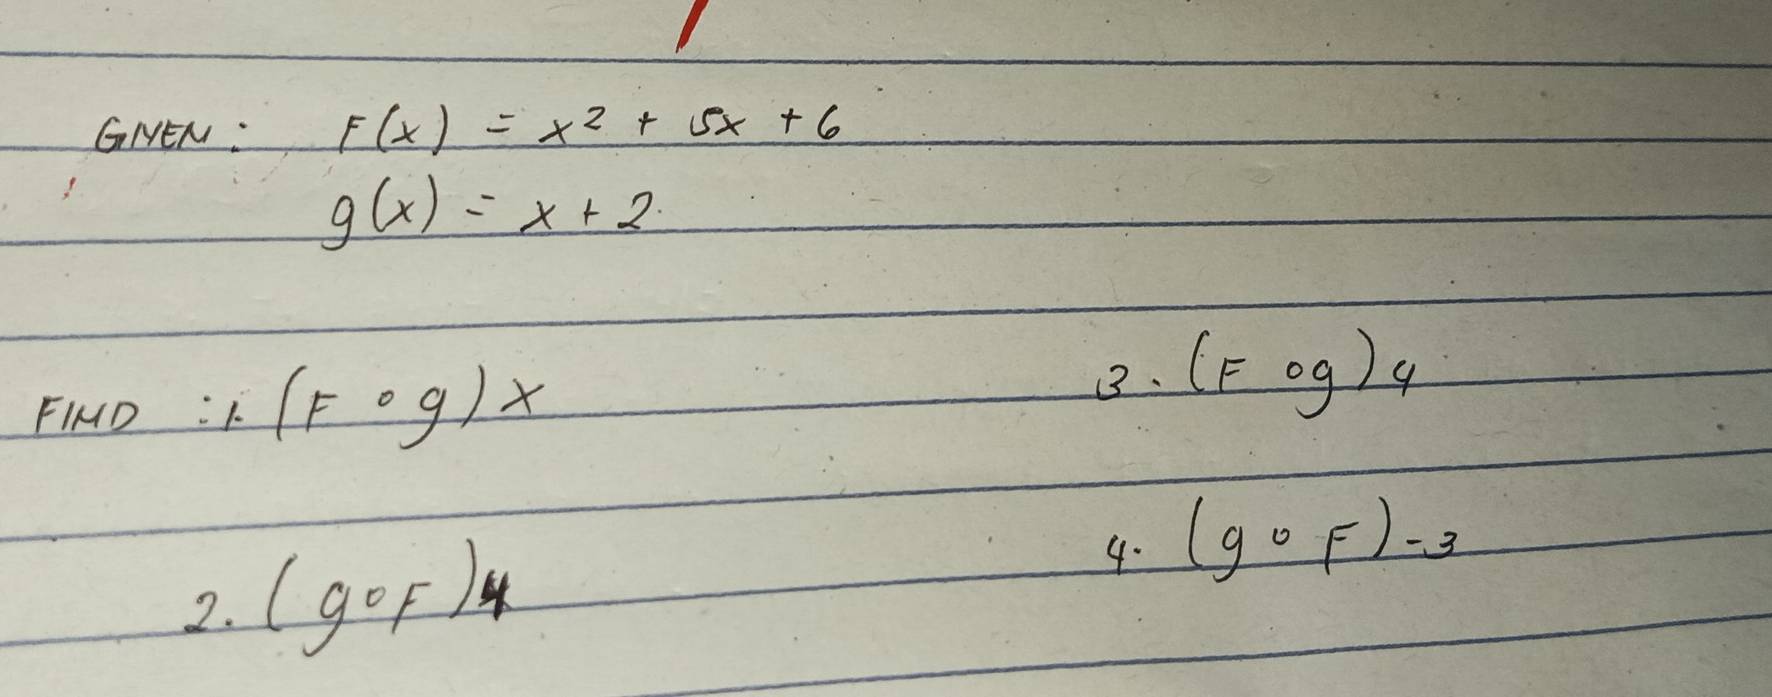 GIVEN: F(x) = x² + 5x + 6
g(x) = x + 2
FIND : 1. (F ∘ g) x
2. (g∘F)4
3. (F ∘g)4
4. (g ∘ F)-3